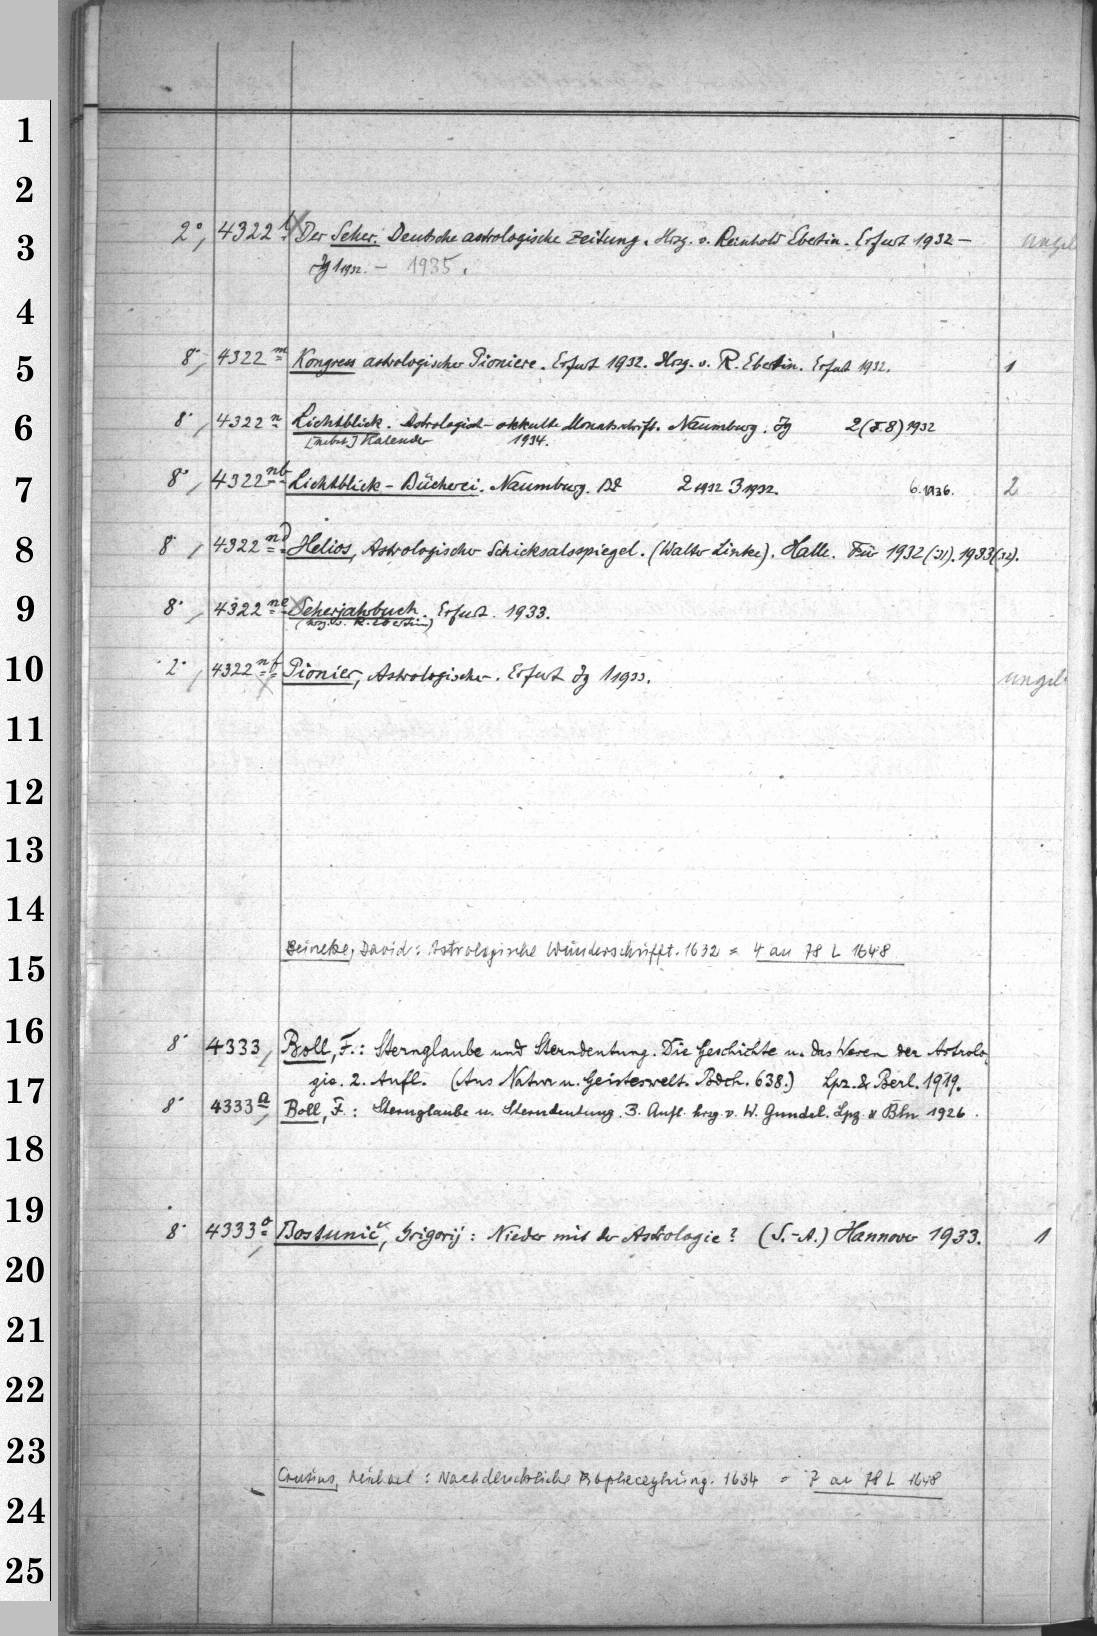 1
2
3
2°, 4322 l. Der Seher. Deutsche astrologische Zeitung. Hrsg. v. Reinhold Ebertin. Erfurt 1932 — ungeb
Jg 1 1932. — 1935.
4
5
8°, 4322 m Kongress astrologischer Pioniere. Erfurt 1932. Hrsg. v. R. Ebertin. Erfurt 1932. 1
6
8° 4322 n Lichtblick. Astrologisch-okkulte Monatsschrift. Naumburg. Jg 2 (T.8) 1932
[nebst] Kalender 1934.
7
8°, 4322 nb Lichtblick-Bücherei. Naumburg. Bd 2 1932 3 1932. 6. 1936. 2
8
8°, 4322 nd Helios, Astrologischer Schicksalsspiegel. (Walter Linke). Halle. Für 1932 (31). 1933 (32).
9
8°, 4322 ne Seherjahrbuch. Erfurt. 1933.
(hrsg. v. R. Ebertin)
10
2°, 4322 nf Pionier, Astrologischer. Erfurt Jg 1 1933. ungeb.
11
12
13
14
15
David: Astrologische Wunderschrifft. 1632 = 4 an 78 L 1648
16
8° 4333, Boll, F.: Sternglaube und Sterndeutung. Die Geschichte u. das Wesen der Astrolo-
17
gie. 2. Aufl. (Aus Natur u. Geisteswelt. Bdch. 638.) Lpz. & Berl. 1919.
8° 4333 a, Boll, F.: Sternglaube u. Sterndeutung. 3. Aufl. hrsg. v. W. Gundel. Lpzg & Bln 1926.
18
19
8° 4333 o, Bostunič, Grigorij: Nieder mit der Astrologie? (S.-A.) Hannover 1933. 1
20
21
22
23
Crusius, Michael: Nachdenckliche Propheceyhung. 1634 = 7 an 78 L 1648
24
25